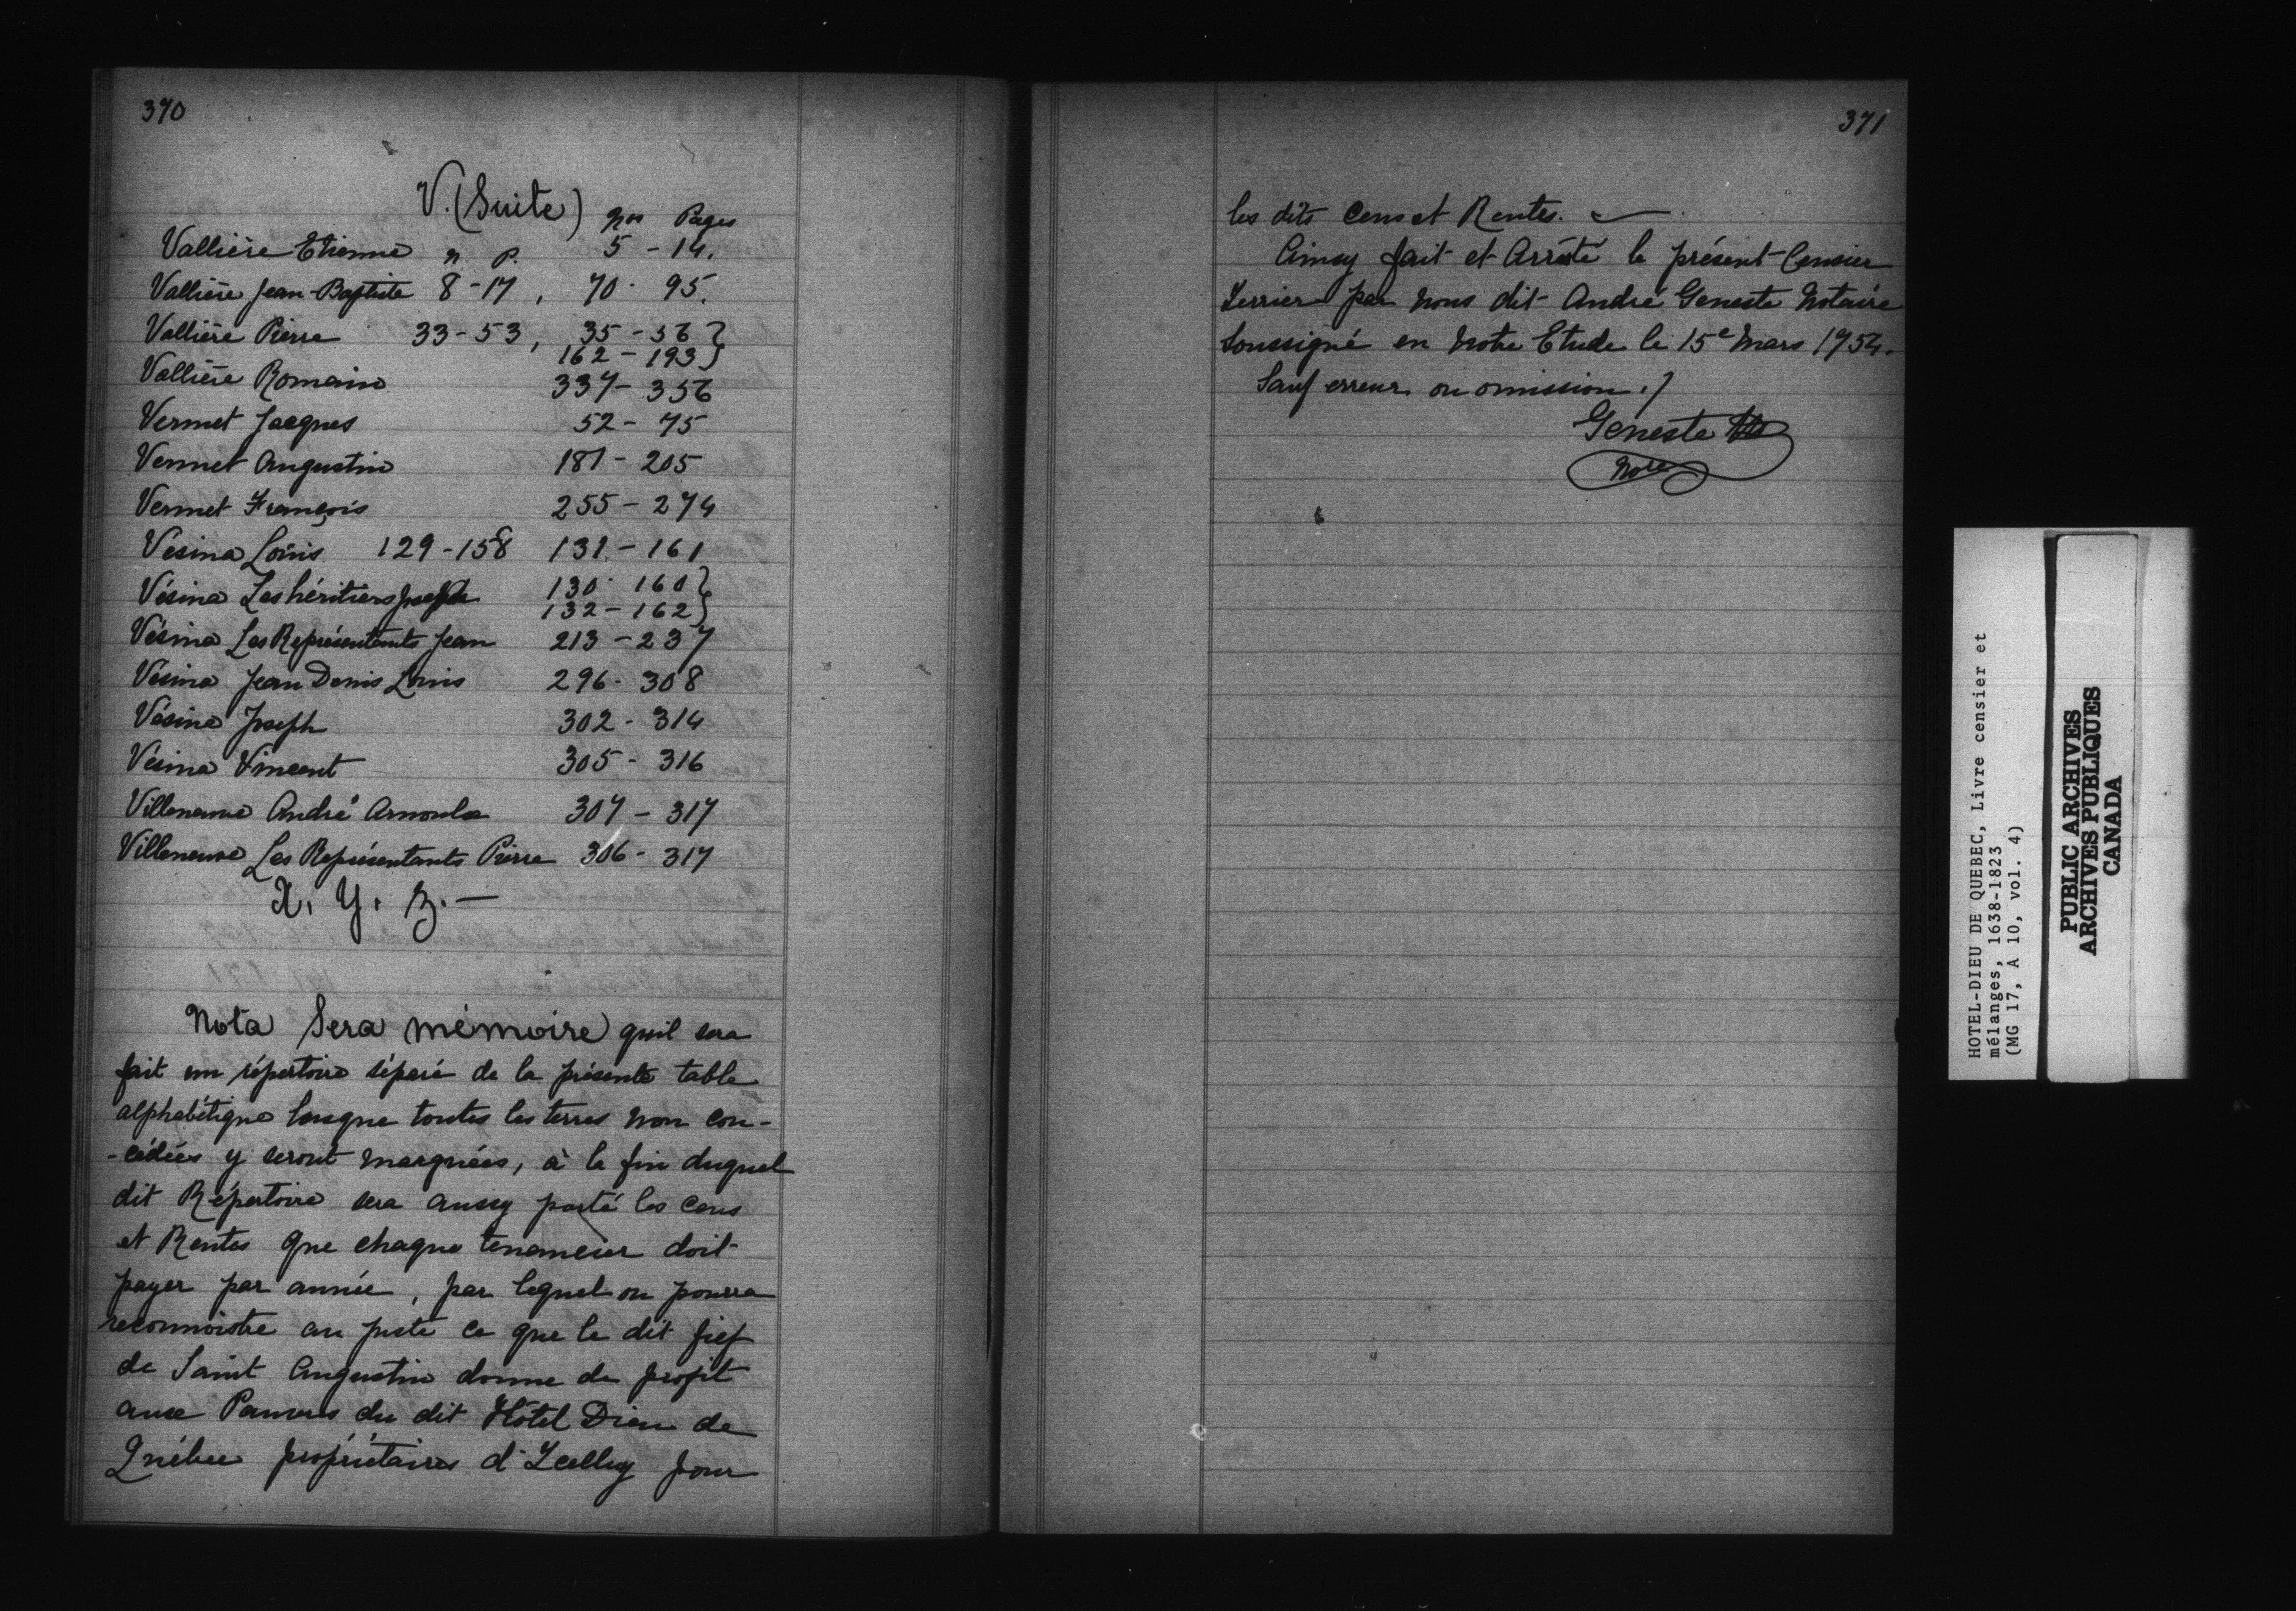 370
V. (Suite) Nos Pages
Vallière Etienne n P. 5 - 14.
Vallière Jean-Baptiste 8-17, 70 - 95.
Vallière Pierre 33-53, 35-56 }
162-193 }
Vallière Romain 337-356
Vermet Jacques 52-75
Vermet Augustin 181-205
Vermet François 255-274
Vésina Louis 129-158 131-161
Vésina Les héritiers Joseph 130-160 }
132-162 }
Vésina Les Représentants Jean 213-237
Vésina Jean Denis Louis 296-308
Vésina Joseph 302-314
Vésina Vincent 305-316
Villeneuve André Arnoulx 307-317
Villeneuve Les Représentants Pierre 306-317
X. Y. Z. —
Nota Sera mémoire quil sera
fait un répertoire séparé de la présente table
alphabétique lorsque toutes les terres non con-
-cédées y seront marquées, à la fin duquel
dit Répertoire sera aussy porté les cens
et Rentes que chaque tenancier doit
payer par année, par lequel on pourra
reconnoistre au juste ce que le dit fief
de Saint Augustin donne de profit
aux Pauvres du dit Hôtel Dieu de
Québec propriétaires d'Icelluy pour
371
les dits Cens et Rentes. —
Ainsy fait et Arrêté le présent Censier
Terrier par Nous dit André Geneste Notaire
Soussigné en Notre Etude le 15e Mars 1754.
Sauf erreur ou omission ./
Geneste
Nore
HOTEL-DIEU DE QUEBEC, Livre censier et
mélanges, 1638-1823
(MG 17, A 10, vol. 4)
PUBLIC ARCHIVES
ARCHIVES PUBLIQUES
CANADA